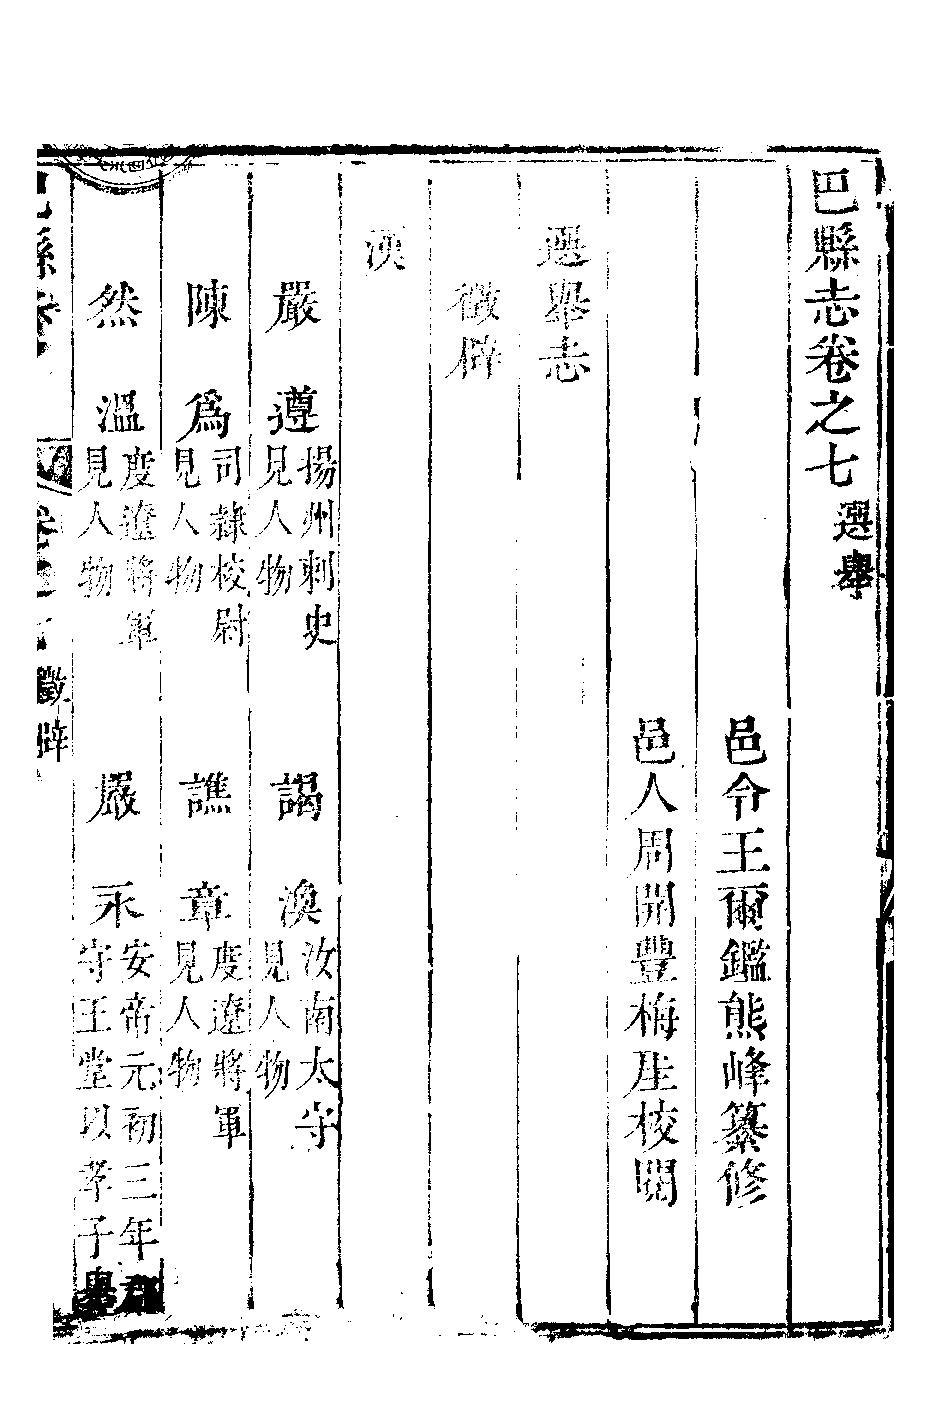 巴縣志卷之七選舉
邑令王爾鑑熊峰纂修
邑人周開豐梅厓校閱
選舉志
徵辟
漢
嚴遵揚州刺史見人物
謁渙汝南太守見人物
陳爲司隸校尉見人物
譙章度遼將軍見人物
然溫度遼將軍見人物
嚴永安帝元初三年郡守王堂以孝子舉
巴縣志
卷之七
徵辟